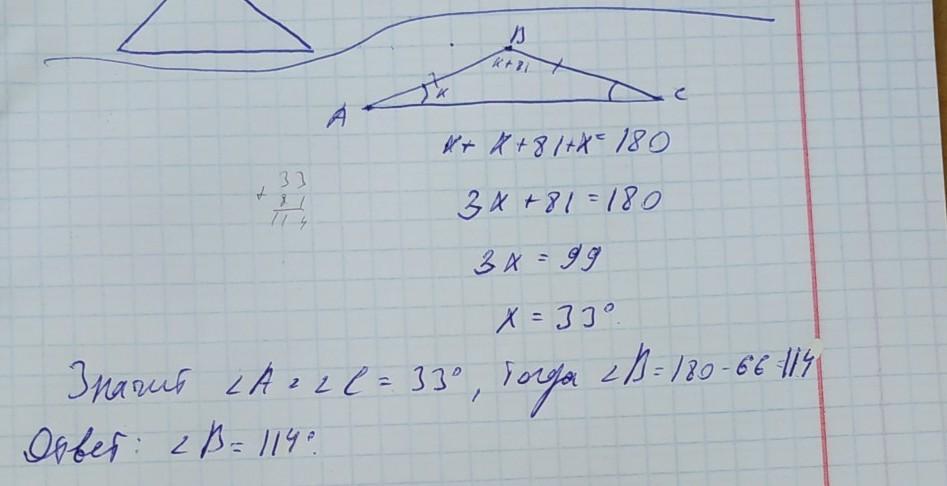 B
x+81
x
A
C
x + x + 81 + x = 180
33
+ 81
114
3x + 81 = 180
3x = 99
x = 33°.
Значит ∠A = ∠C = 33°, тогда ∠B = 180 - 66 = 114
Ответ: ∠B = 114°.